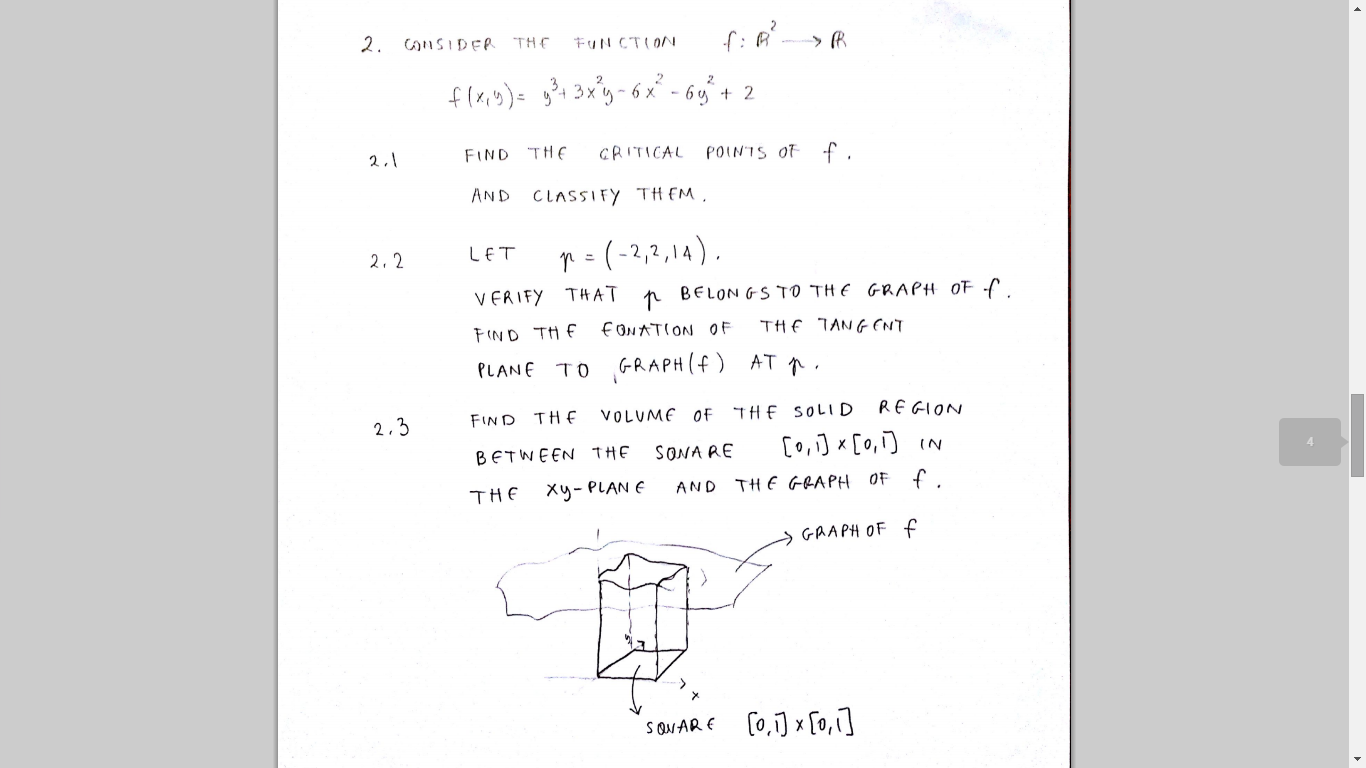 2. CONSIDER THE FUNCTION f: ℝ² → ℝ
f(x,y) = y³ + 3x²y - 6x² - 6y² + 2
2.1 FIND THE CRITICAL POINTS OF f.
AND CLASSIFY THEM.
2.2 LET p = (-2,2,14).
VERIFY THAT p BELONGS TO THE GRAPH OF f.
FIND THE EQUATION OF THE TANGENT
PLANE TO GRAPH(f) AT p.
2.3 FIND THE VOLUME OF THE SOLID REGION
BETWEEN THE SQUARE [0,1] × [0,1] IN
THE xy-PLANE AND THE GRAPH OF f.
→ GRAPH OF f
4
y
x
SQUARE [0,1] × [0,1]